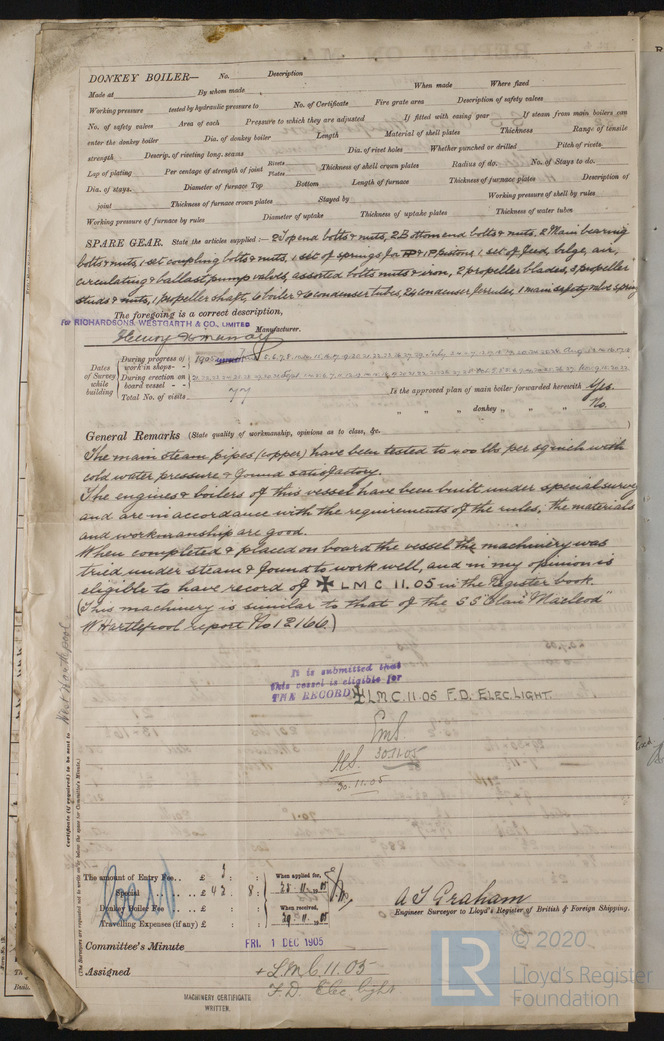 DONKEY BOILER— No. Description
Made at By whom made When made Where fixed
Working pressure tested by hydraulic pressure to No. of Certificate Fire grate area Description of safety valves
No. of safety valves Area of each Pressure to which they are adjusted If fitted with easing gear If steam from main boilers can
enter the donkey boiler Dia. of donkey boiler Length Material of shell plates Thickness Range of tensile
strength Descrip. of riveting long. seams Dia. of rivet holes Whether punched or drilled Pitch of rivets
Lap of plating Per centage of strength of joint Rivets Plates Thickness of shell crown plates Radius of do. No. of Stays to do.
Dia. of stays. Diameter of furnace Top Bottom Length of furnace Thickness of furnace plates Description of
joint Thickness of furnace crown plates Stayed by Working pressure of shell by rules
Working pressure of furnace by rules Diameter of uptake Thickness of uptake plates Thickness of water tubes
SPARE GEAR. State the articles supplied:— 2 Top end bolts & nuts, 2 Bottom end bolts & nuts, 2 Main bearing
bolts & nuts, 1 set coupling bolts & nuts, 1 set of springs for piston, 1 set of feed, bilge, air,
circulating & ballast pump valves, assorted bolts nuts & iron, 2 propeller blades, 3 propeller
studs & nuts, 1 propeller shaft, 6 boiler & 6 condenser tubes, 24 condenser ferrules, 1 main safety valve spring
The foregoing is a correct description,
For RICHARDSONS, WESTGARTH & CO., LIMITED Manufacturer.
Dates of Survey while building
During progress of work in shops - - 1905
During erection on board vessel - -
Total No. of visits 77
Is the approved plan of main boiler forwarded herewith Yes.
" " " donkey " " " No.
General Remarks (State quality of workmanship, opinions as to class, &c.
The main steam pipes (copper) have been tested to 400 lbs per sq inch with
cold water pressure & found satisfactory.
The engines & boilers of this vessel have been built under special survey
and are in accordance with the requirements of the rules, the materials
and workmanship are good.
When completed & placed on board the vessel the machinery was
tried under steam & found to work well, and in my opinion is
eligible to have record of ✠ L M C 11.05 in the Register book.
(This machinery is similar to that of the SS "Clan Macleod"
W Hartlepool report No 12166.)
It is submitted that
this vessel is eligible for
THE RECORD ✠ LMC 11.05 F.D. ELEC. LIGHT.
30.11.05
30.11.05
West Hartlepool
Certificate (if required) to be sent to
(The Surveyors are requested not to write on or below the space for Committee's Minute.)
The amount of Entry Fee.. £ 3 : :
Special .. £ 43 : 8 :
Donkey Boiler Fee .. £ : :
Travelling Expenses (if any) £ : :
When applied for,
28.11.05
When received,
29.11.05
A T Graham
Engineer Surveyor to Lloyd's Register of British & Foreign Shipping.
Committee's Minute FRI. 1 DEC 1905
Assigned + L.M.C. 11.05
F.D. Elec. light
MACHINERY CERTIFICATE
WRITTEN.
LR
© 2020
Lloyd's Register
Foundation